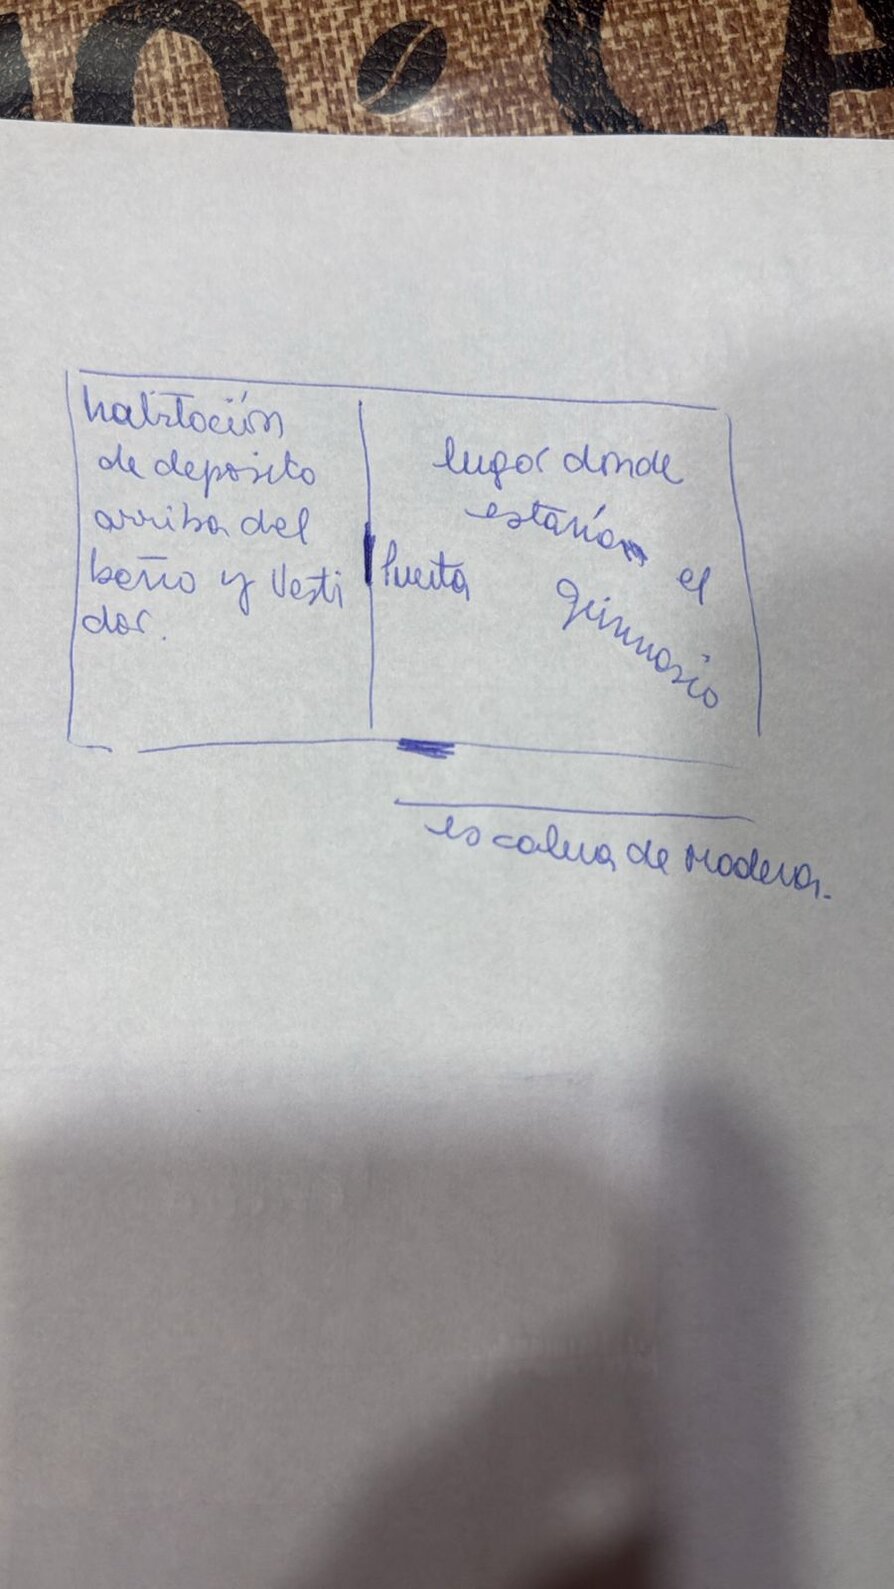 habitación
de deposito
arriba del
baño y Vesti
dor.
Puerta
lugar donde
estaría
el
gimnasio
escalera de madera.